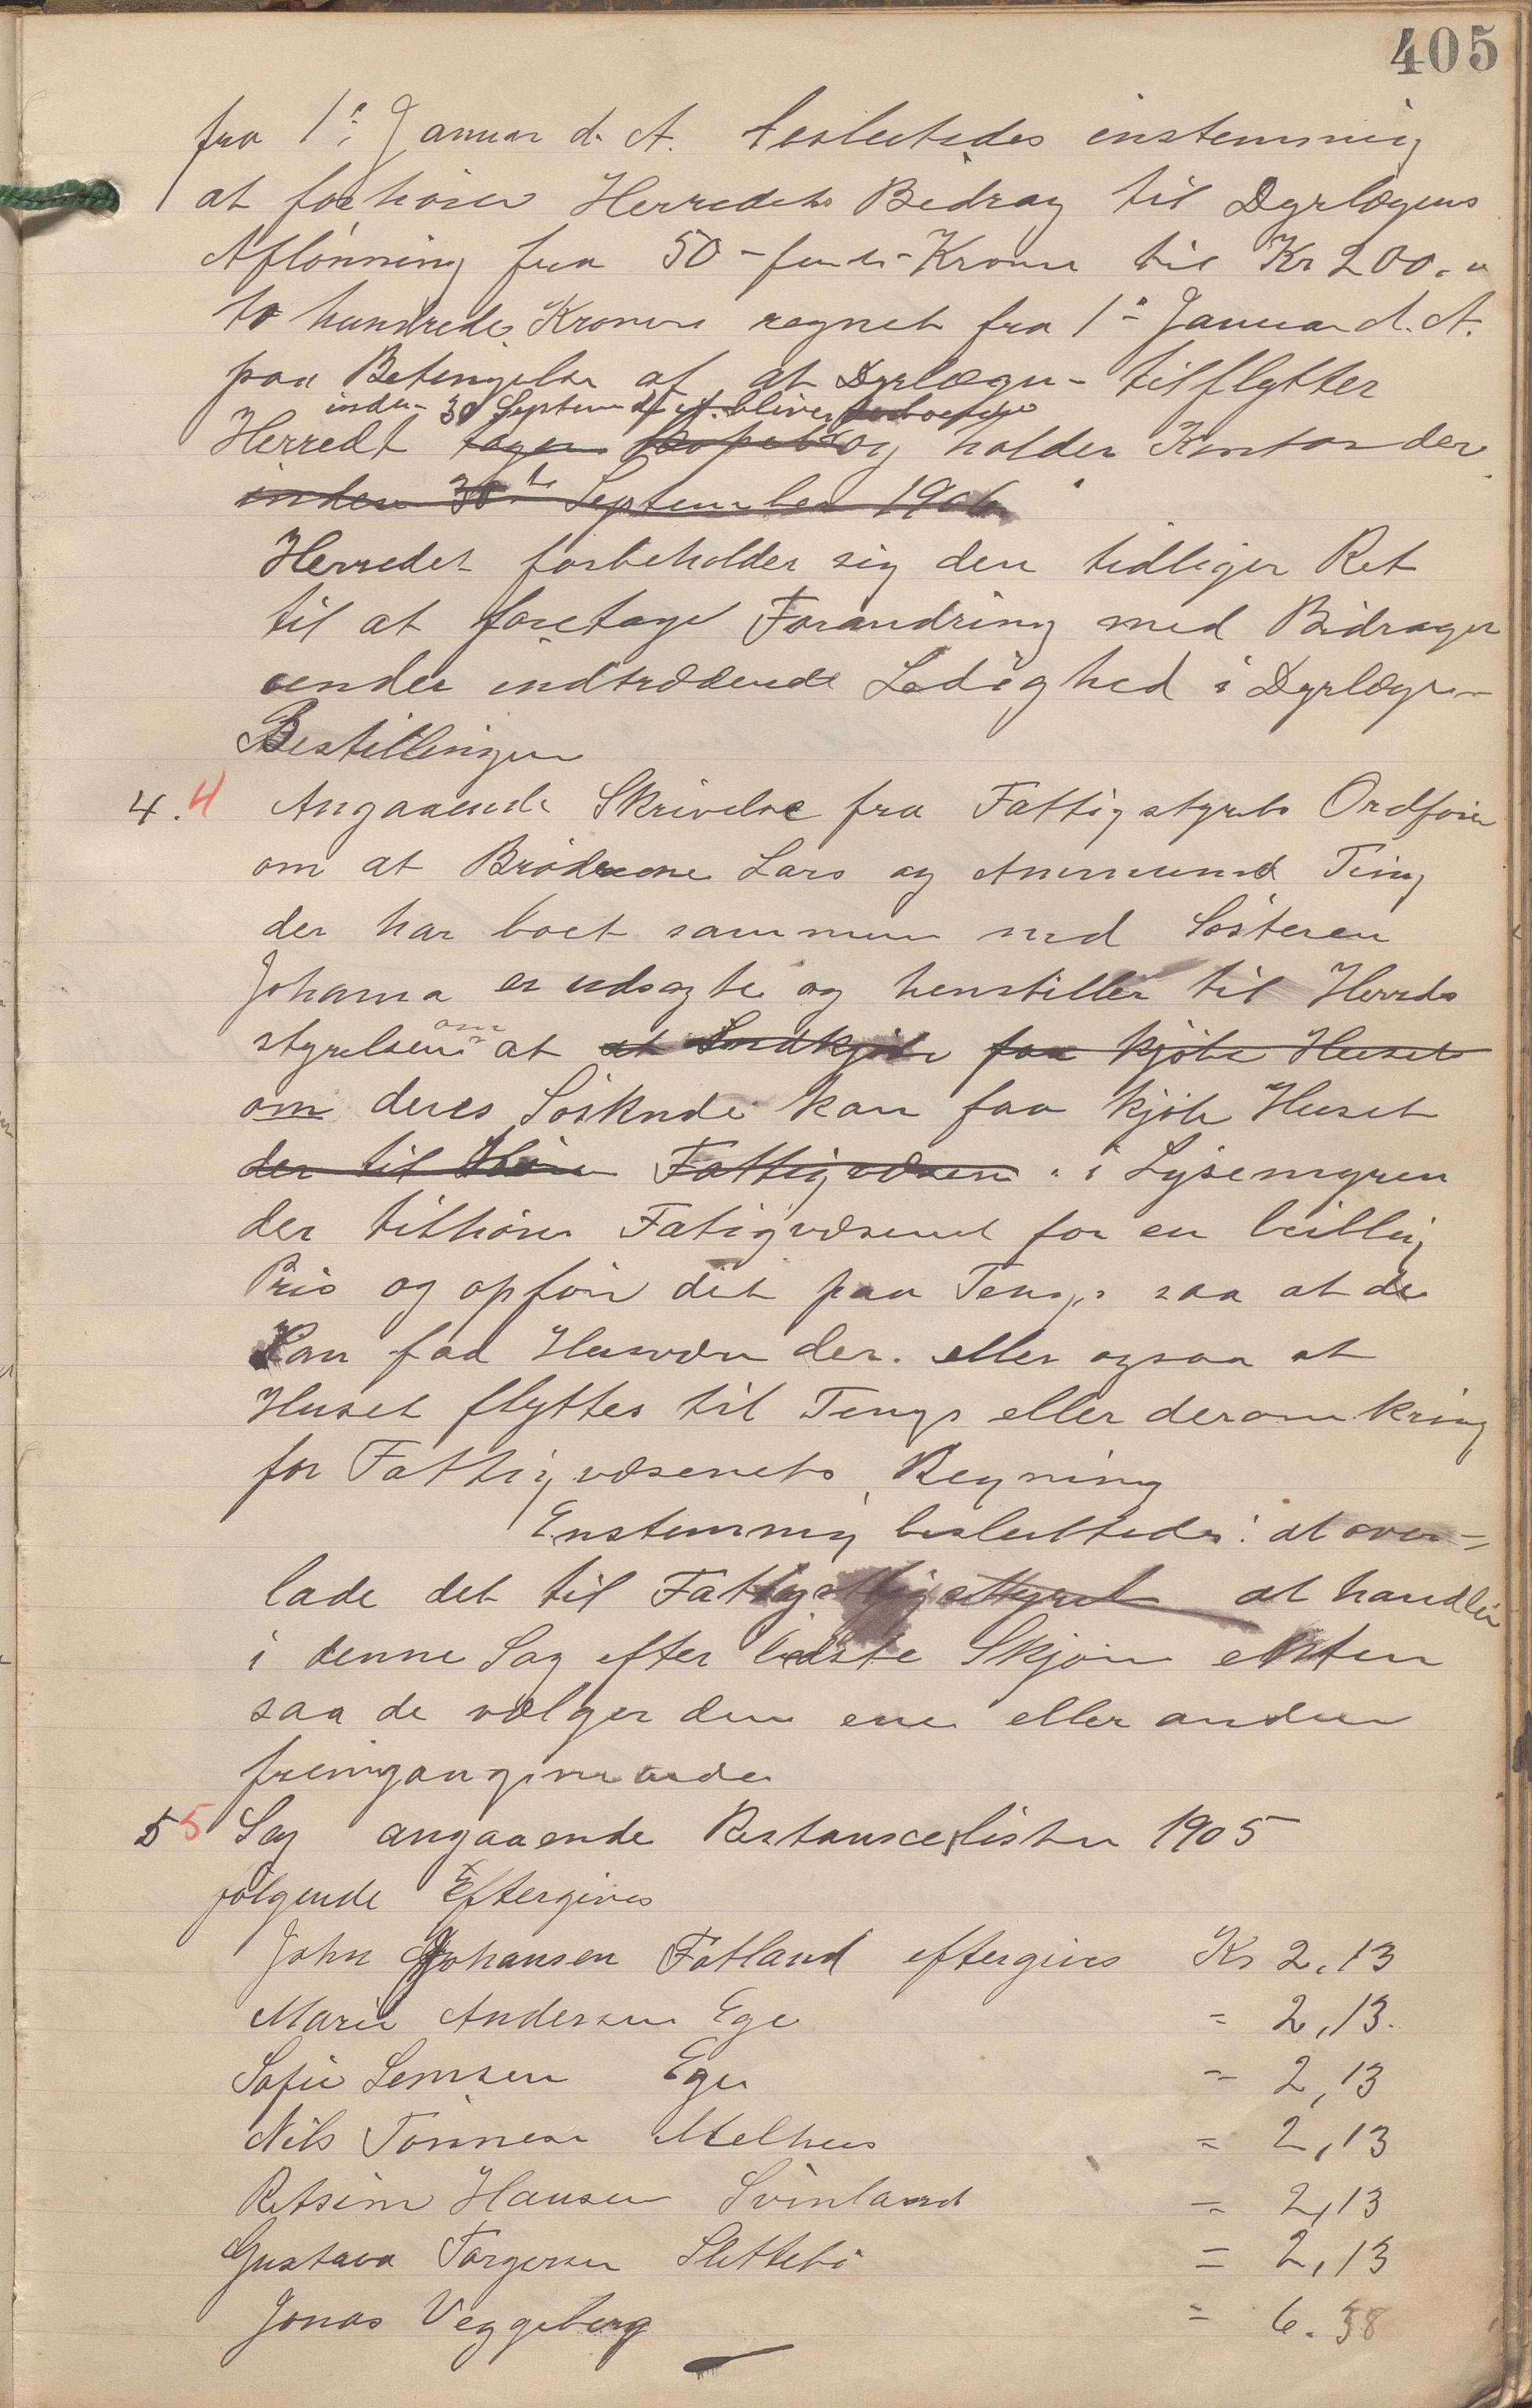 405
fra 1ste Januar d. A. besluttedes enstemmig
at forhøies Herredets Bidrag til Dyrlægens
Aflønning fra 50 - femti - Kroner til Kr 200."
to hundrede Kroner regnet fra 1ste Januar d. A.
paa Betingelse af at Dyrlægen tilflytter
inden 30 Septemb d. A. bliver
Herredt tager og holder Kontor der
inden 30te September 1906
Herredet forbeholder sig den tidliger Ret
til at foretage Forandring med Bidraget
under indtrædende Ledighed i Dyrlæge-
Bestillingen
4. 4 Angaaende Skrivelse fra Fattigstyrets Ordfører
om at Brødrene Lars og Ammund Teng
der har boet sammen med Søsteren
Johanna er udsagte og henstiller til Herreds
styrelsen om at at faa kjøbe Huset
om deres Søsknde kan faa kjøbe Huset
der til Fattigvæsen i Lysemyren
der tilhører Fatigvæsenet for en billig
Pris og opføre det paa Tengs saa at de
kan faa Husvær der. eller ogsaa at
Huset flyttes til Tengs eller deromkring
for Fattigvæsenets Regning
Enstemmig besluttedes: at over-
lade det til Fattigstyret at handle
i denne Sag efter bedste Skjøn enten
saa de vælger den ene eller anden
fremgangsmaade
5 5 Sag angaaende Restancelisten 1905
følgende Eftergives
John Johansen Fotland eftergives Kr 2,13
Marie Andersen Ege = 2,13.
Sofie Ege = 2,13
Nils Tønnesen Melhus = 2,13
Hansen Svinland = 2,13
Gustava Torgersen Slettebø = 2,13
Jonas Veggeberg = 6.38